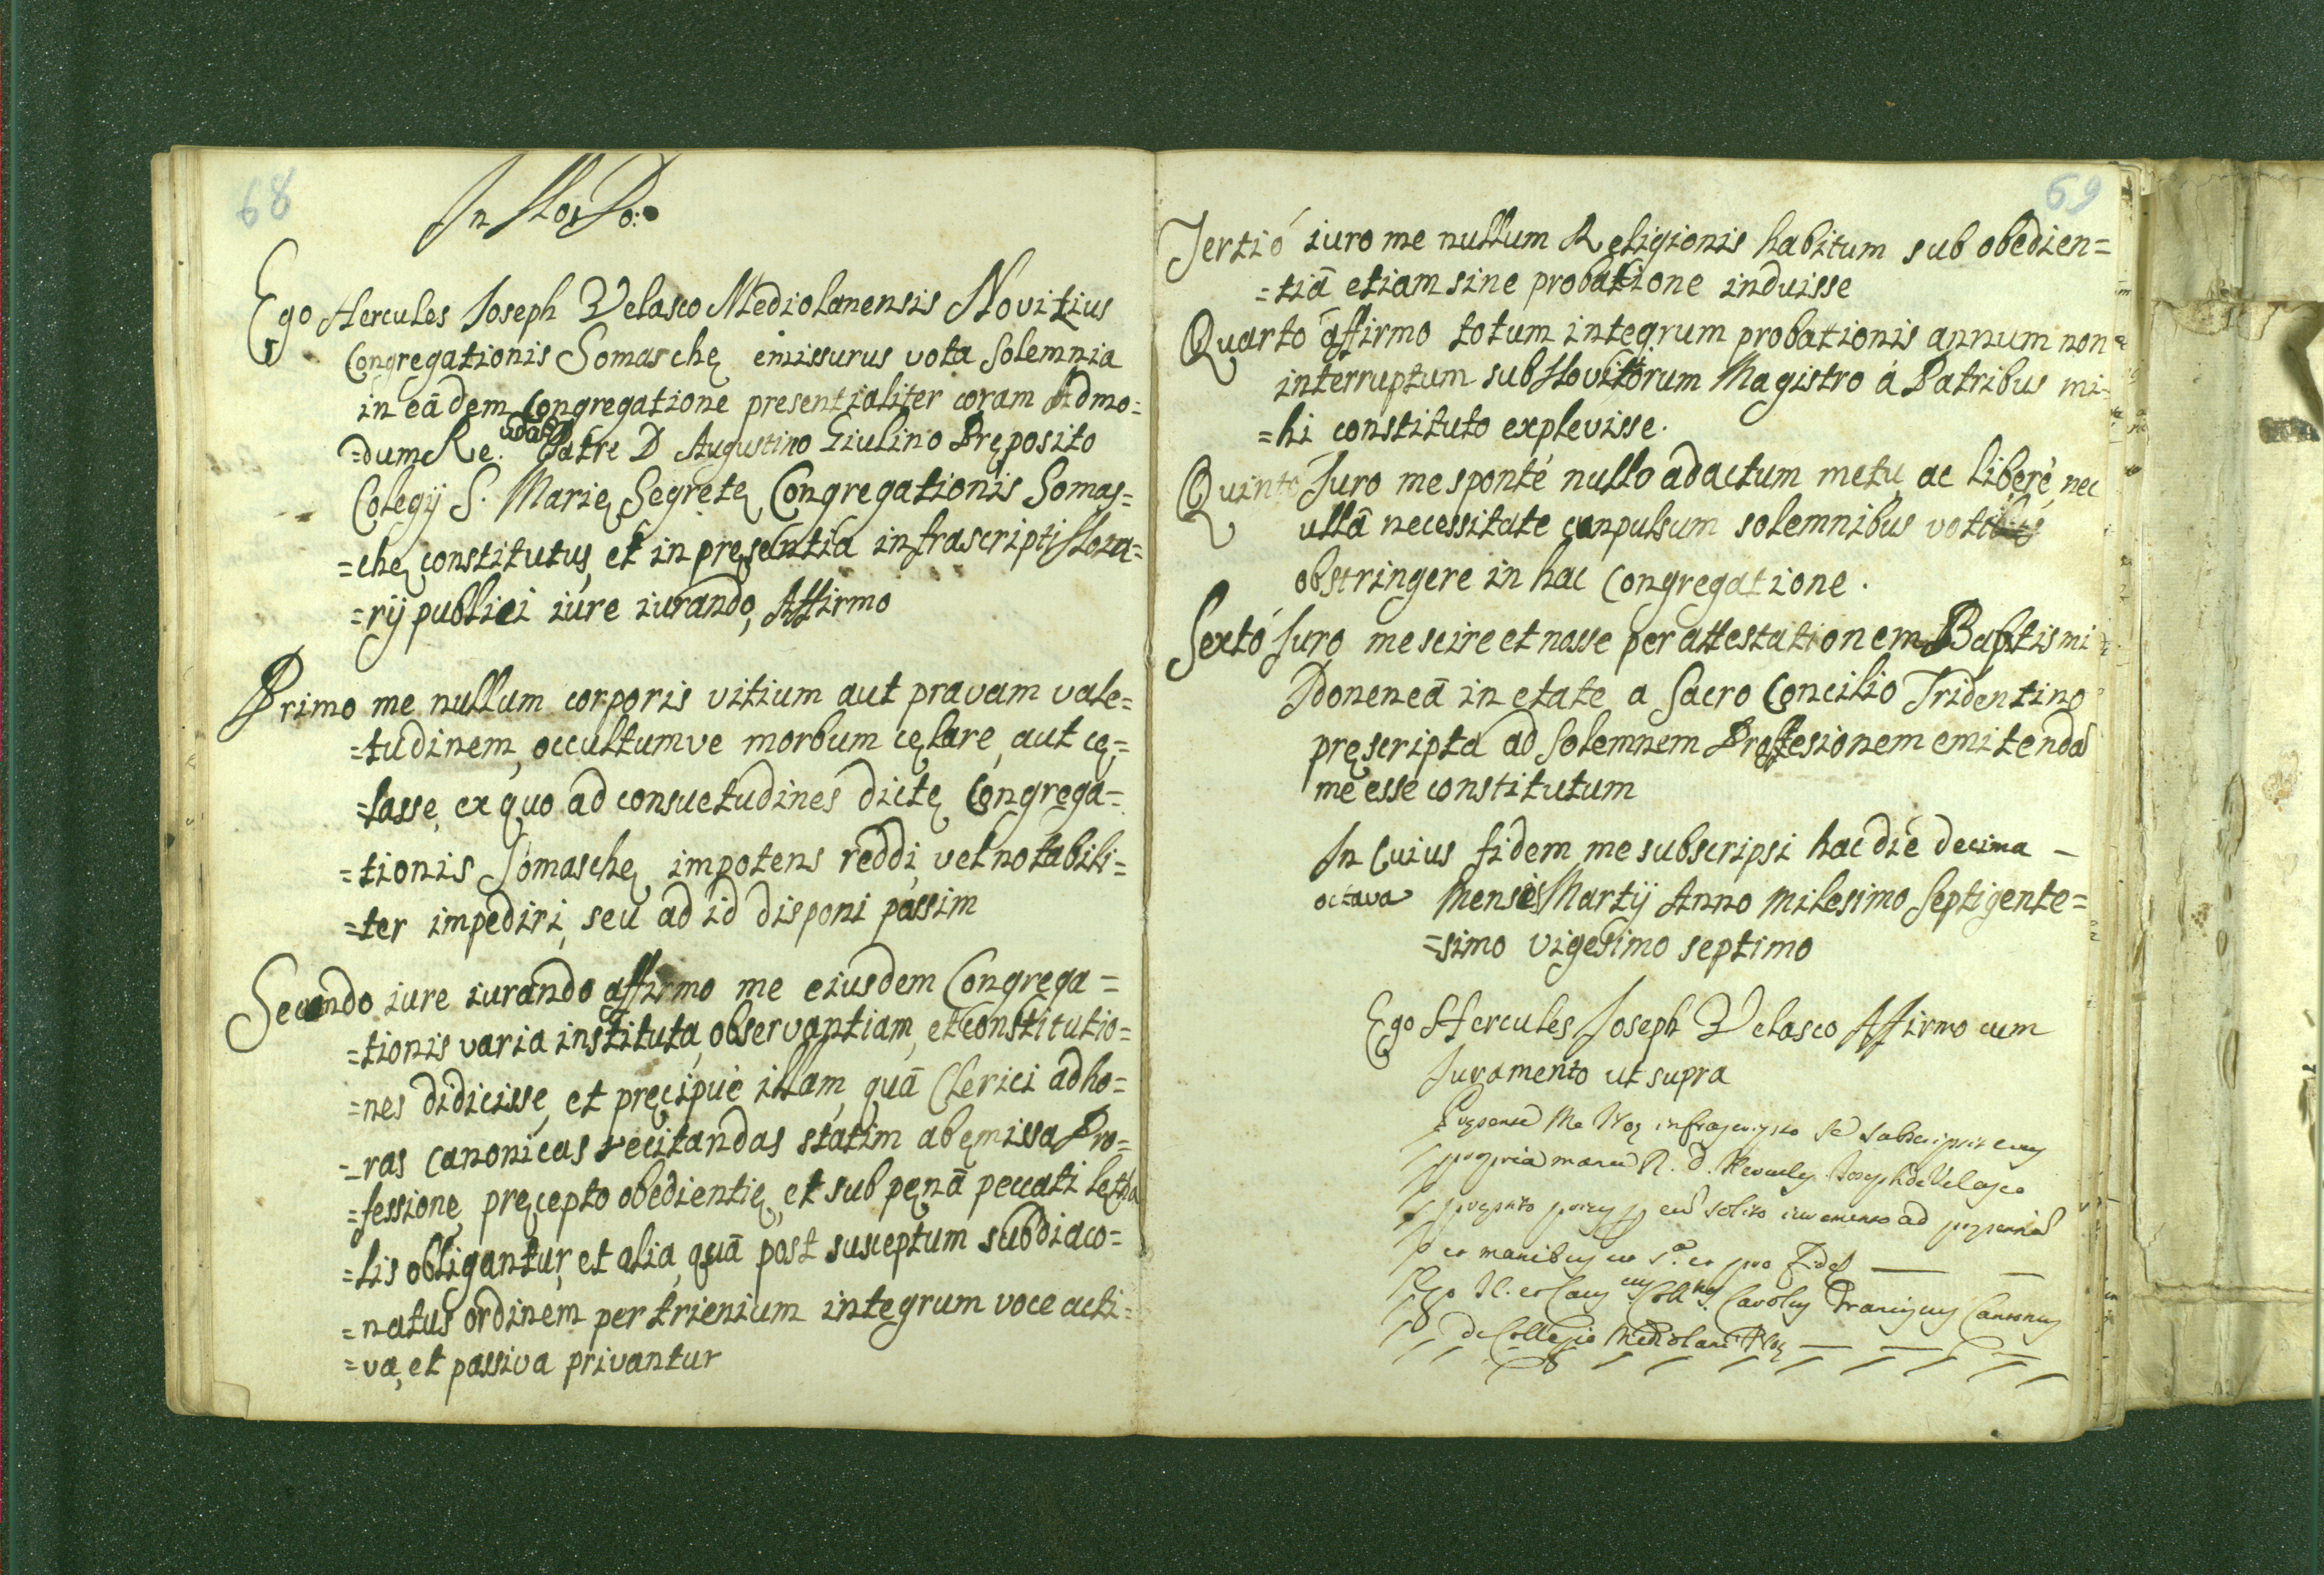 68
In Noe Do:
Ego Hercules Joseph Velasco Mediolanensis Novitius
Congregationis Somaschę emissurus vota Solemnia
in eādem Congregatione presentialiter coram Admo=
=dum Re.udo Patre D Augustino Giulino Pręposito
Colegij S. Marię Segretę Congregationis Somas=
=chę constitutus, et in pręsentia infrascripti Nota=
=rij publici iure iurando, Affirmo
Primo me nullum corporis vitium aut pravam vale=
=tudinem, occultumve morbum cęlare, aut cę=
=lasse, ex quo ad consuetudines dictę Congrega=
=tionis Somaschę impotens reddi, vel notabili=
=ter impediri, seu ad id disponi passim
Secundo iure iurando affirmo me eiusdem Congrega=
=tionis varia instituta, observantiam, et Constitutio=
=nes didicisse, et pręcipuè illam, quā Clerici ad ho=
=ras canonicas recitandas statim ab emissa Pro=
=fessione, pręcepto obedientię, et sub pęnā peccati letha
=lis obligantur, et alia, quā post susceptum subdiaco=
=natus ordinem per trienium integrum voce acti=
=va, et passiva privantur
69
Tertiò iuro me nullum Religionis habitum sub obedien=
=tiā etiam sine probatione induisse
Quarto affirmo totum integrum probationis annum non
interruptum sub Novitiorum Magistro à Patribus mi=
=hi constituto explevisse.
Quinto Juro me spontè nullo adactum metu, ac liberè, nec
ullā necessitate conpulsum solemnibus votibus
obstringere in hac Congregatione.
Sextò Juro me scire et nosse per attestationem Baptismi
Idoneneā in etate a Sacro Concilio Tridentino
pręscripta ad Solemnem Proffesionem emitendā
me esse constitutum
In Cuius fidem me subscripsi hac diè decima -
octava Mensis Martij Anno Milesimo Septigente=
=simo vigesimo septimo
Ego Hercules Joseph Velasco Affirmo cum
Juramento ut supra
me Not infrascripto se subscripsit
propria manu R. D. Joseph de Velasco
ad
manibus et pro Fide
Ego Carolus Franciscus
de Collegio Mediolani Not